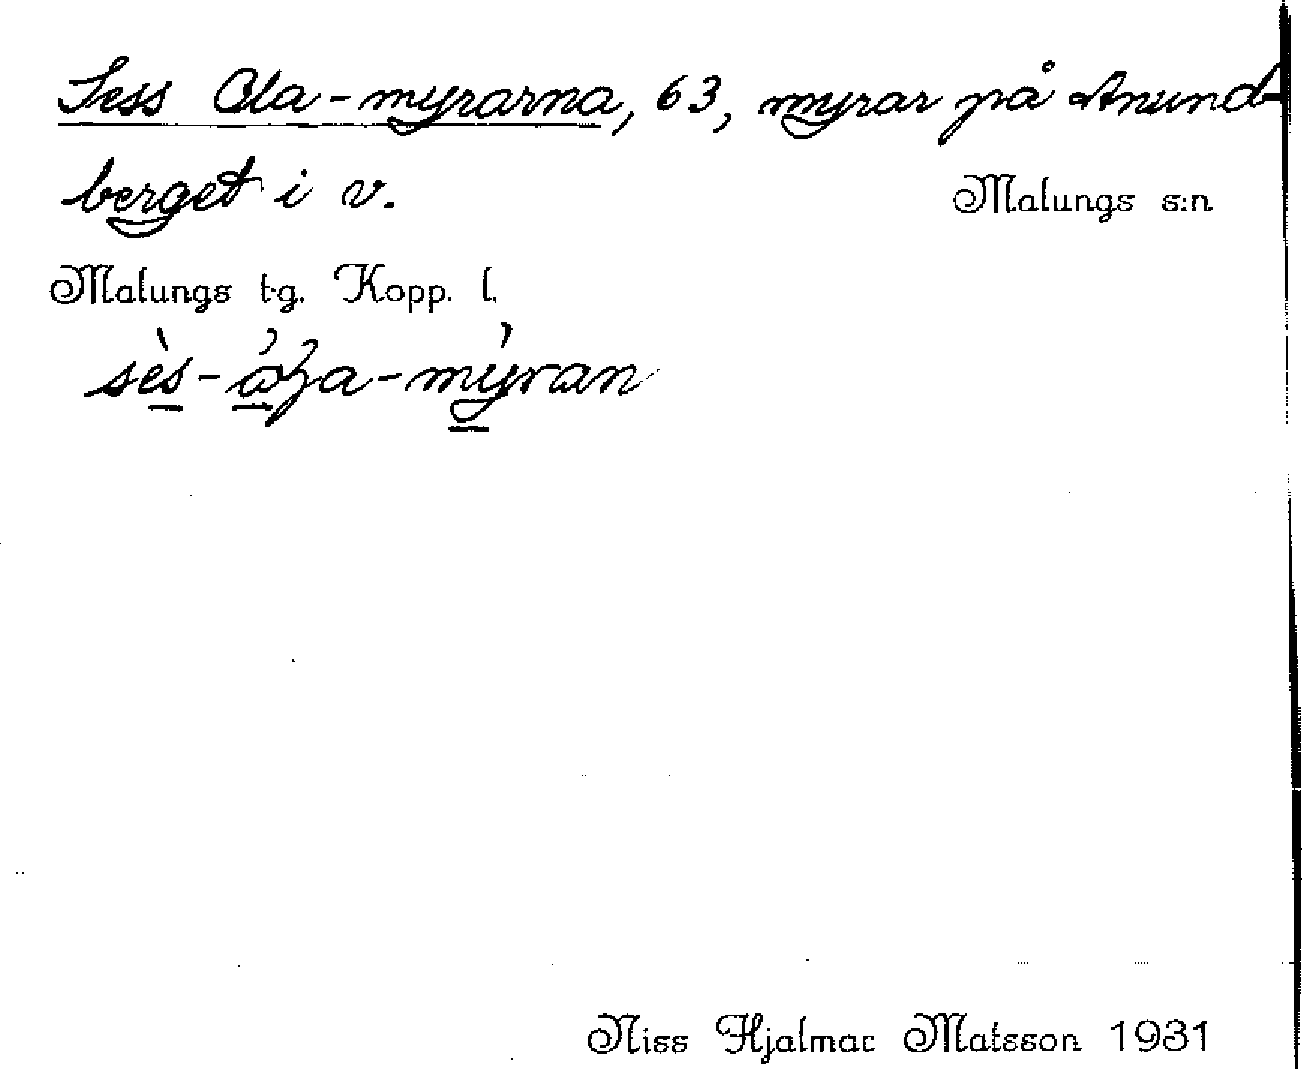 Sess Ola-myrarna, 63, myrar på Anund-
berget i v.
Malungs s:n
Malungs tg. Kopp. l.
Niss Hjalmar Matsson 1931